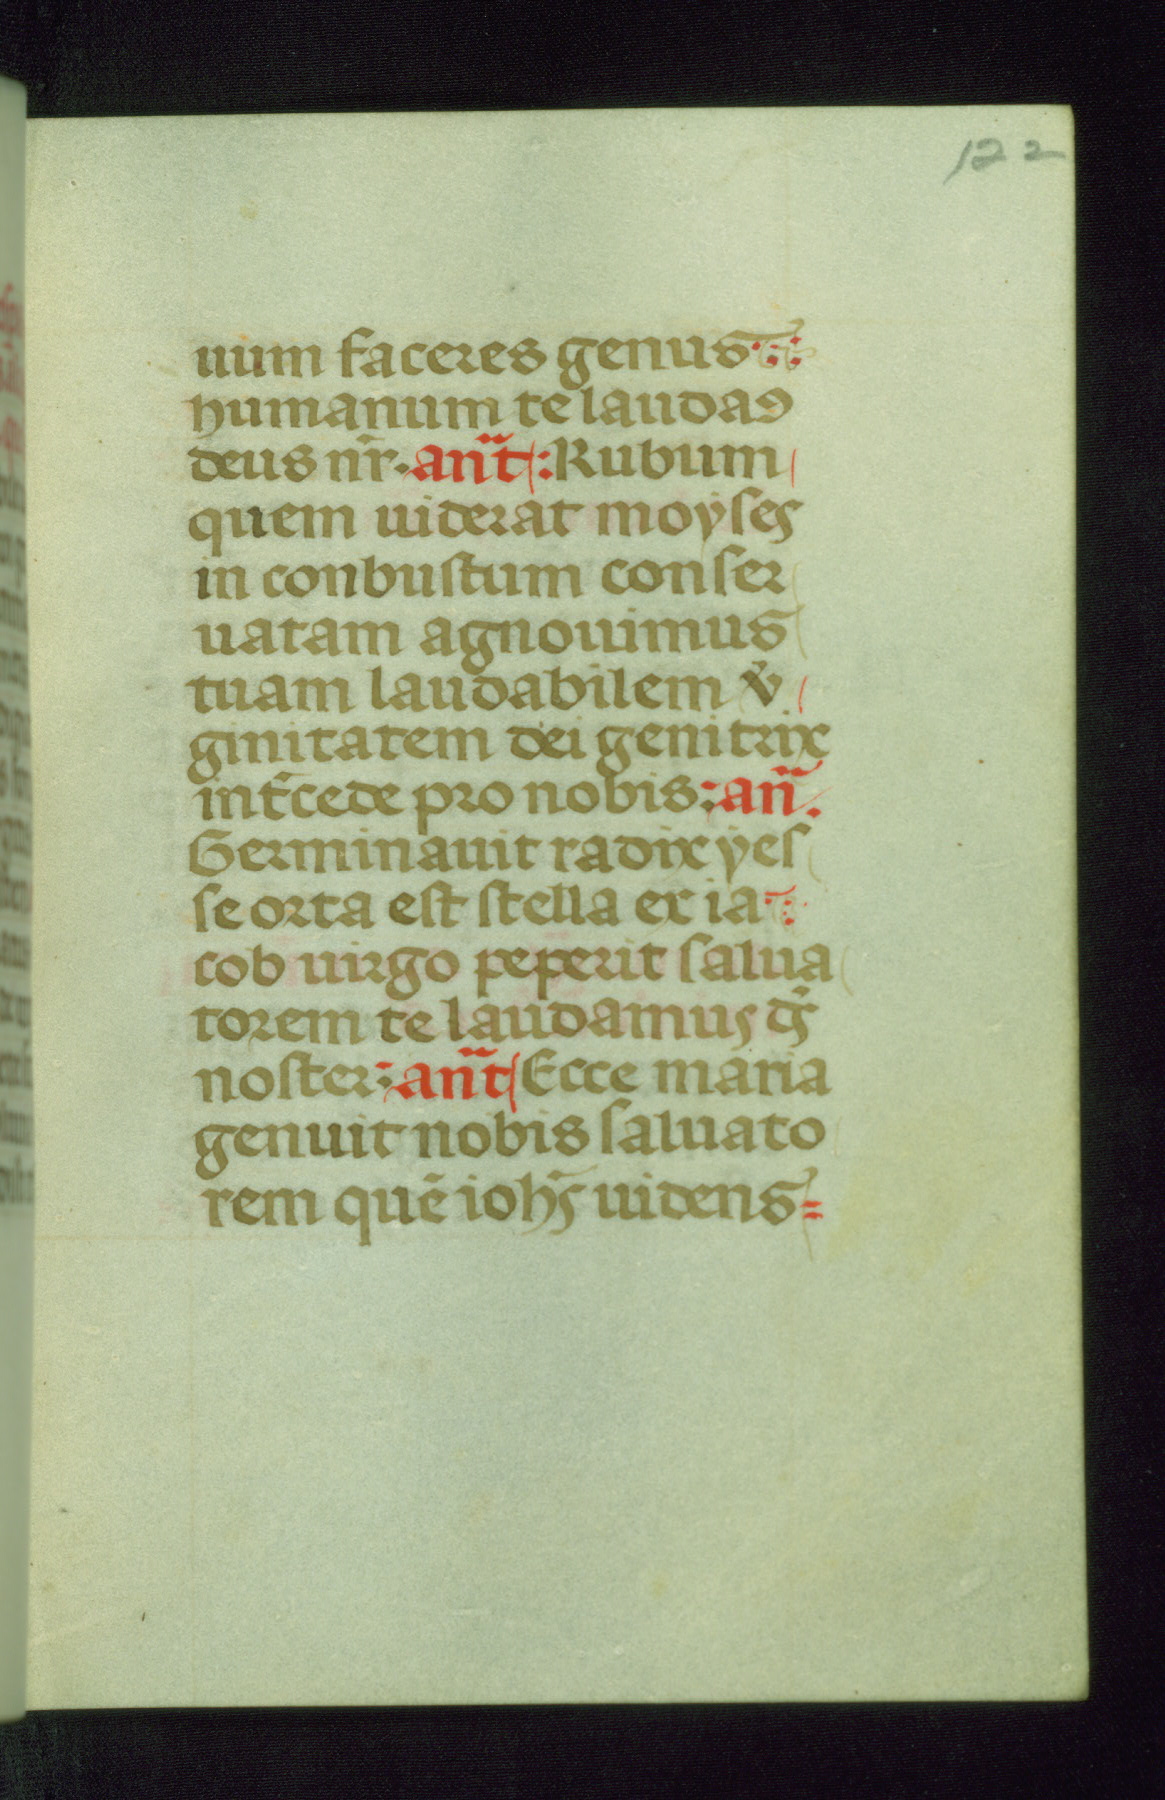 122
uum faceres genus
humanum te laudaꝯ
deus nr̄. an̄t: Rubum
quem uiderat moyses
in conbustum conser
uatam agnouimus
tuam laudabilem v̓
ginitatem dei genitrix
int̄cede pro nobis: an̄.
Germinauit radix yes
se orta est stella ex ia
cob uirgo peperit salua
torem te laudamus ds̄
noster: an̄t Ecce maria
genuit nobis saluato
rem quē iohs̄ uidens=